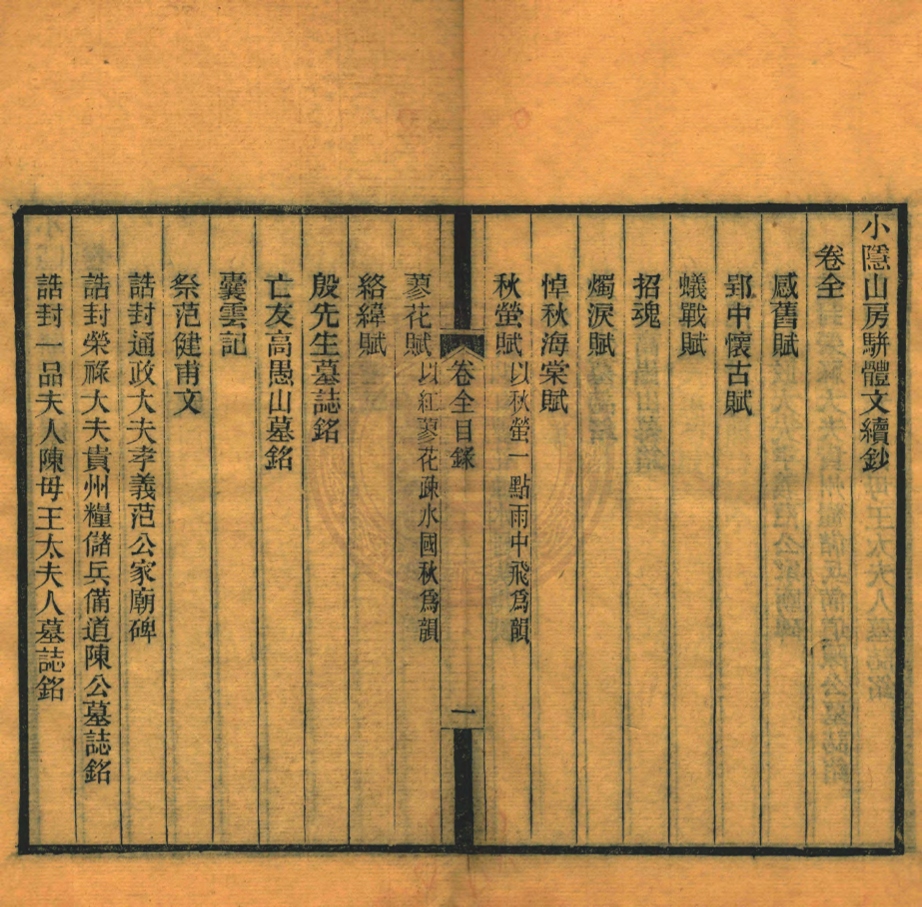 小隱山房駢體文續鈔
卷全
感舊賦
郢中懷古賦
蟻戰賦
招魂
燭淚賦
悼秋海棠賦
秋螢賦以秋螢一點雨中飛爲韻
卷全目錄
一
蓼花賦以紅蓼花疎水國秋爲韻
絡緯賦
殷先生墓誌銘
亡友高愚山墓銘
囊雲記
祭范健甫文
誥封通政大夫孝義范公家廟碑
誥封榮祿大夫貴州糧儲兵備道陳公墓誌銘
誥封一品夫人陳母王太夫人墓誌銘